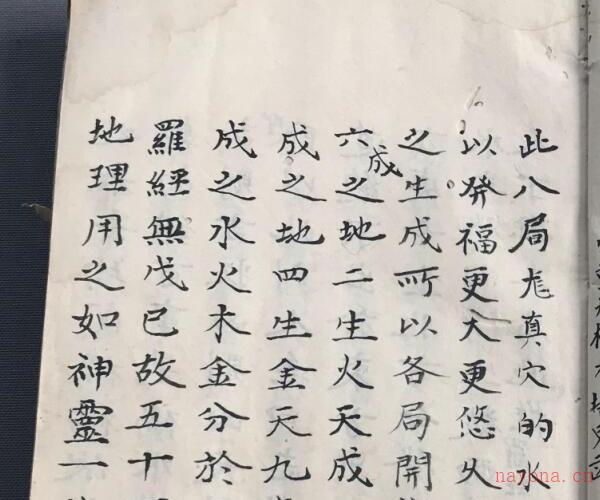 此八局龙真穴的水
以發福更大更悠久
之生成所以各局開
六成之地二生火天成
成之地四生金天九
成之水火木金分於
羅經無戊已故五十
地理用之如神靈一
nayona.cn